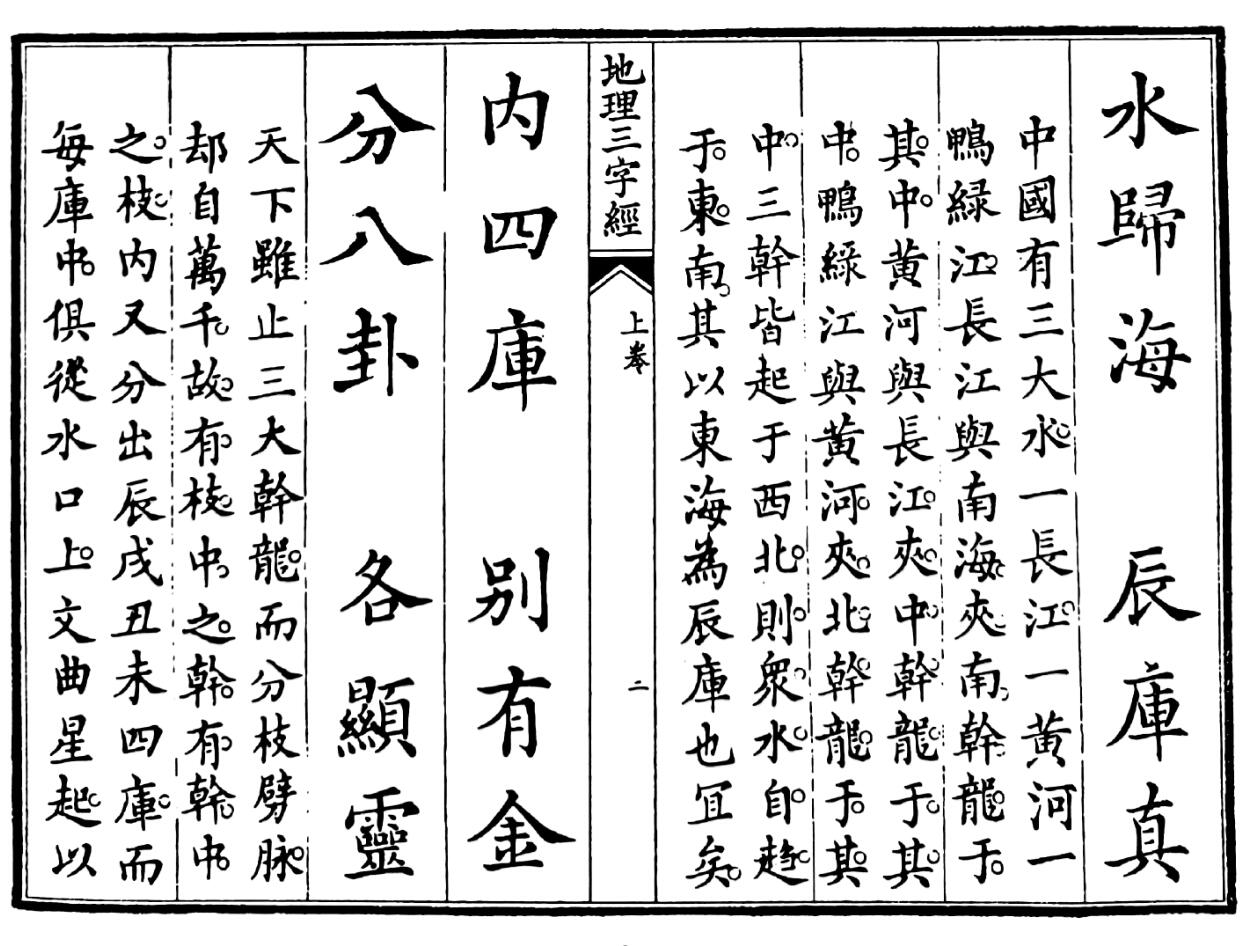 水歸海　辰庫真
中國有三大水。一長江。一黃河一
鴨綠江。長江與南海。夾南。幹龍于。
其。中。黃河與長江。夾。中。幹龍于其
中。鴨綠江與黃河。夾。北幹龍于其
中。三幹皆起于西北。則眾水自趋
于。東南。其以東海為辰庫也宜矣。
地理三字經
上卷
二
内四庫　别有金
分八卦　各顯靈
天下雖止三大幹龍。而分枝劈脉。
却自萬千。故有枝。中之幹。有幹中
之。枝。内又分出辰戌丑未四庫。而
每庫中。俱從水口上。文曲星起。以